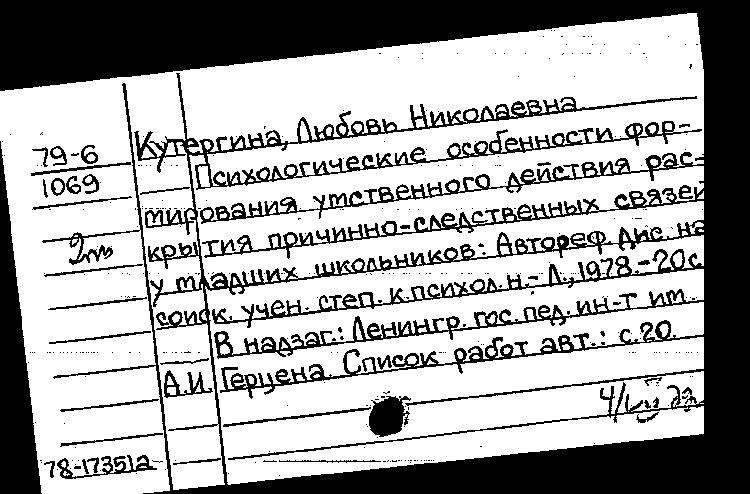 79-6
1069
2т
Кутергина, Любовь Николаевна
Психологические особенности фор-
мирования умственного действия рас-
крытия причинно-следственных связей
у младших школьников: Автореф. дис. на
соиск. учен. степ. к.психол.н.- Л., 1978.-20с
В надзаг.: Ленингр. гос. пед. ин-т им.
А.И. Герцена. Список работ авт.: с.20.
78-17351а